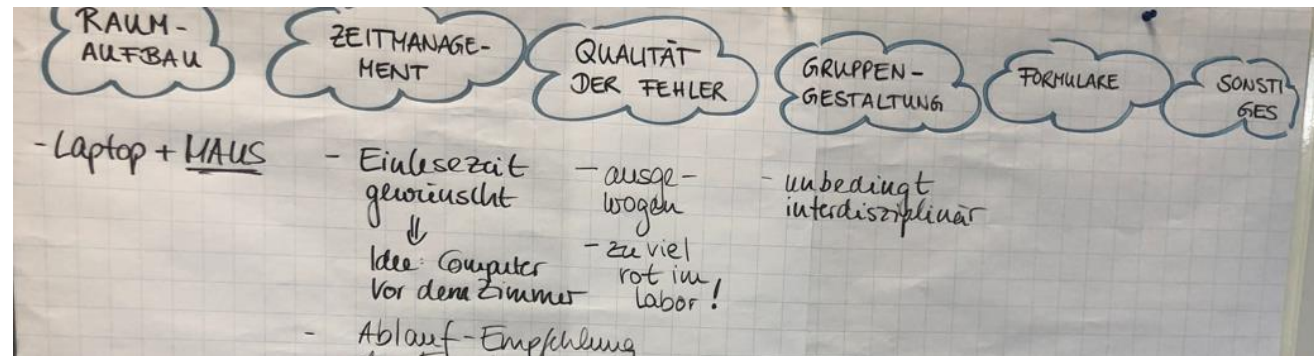 RAUM-
AUFBAU
ZEITMANAGE-
MENT
QUALITÄT
DER FEHLER
GRUPPEN-
GESTALTUNG
FORMULARE
SONSTI
GES
- Laptop + MAUS
- Einlesezeit
gewünscht
⇓
Idee: Computer
vor dem Zimmer
- Ablauf-Empfehlung
- ausge-
wogen
- zu viel
rot im
Labor!
- unbedingt
interdisziplinär